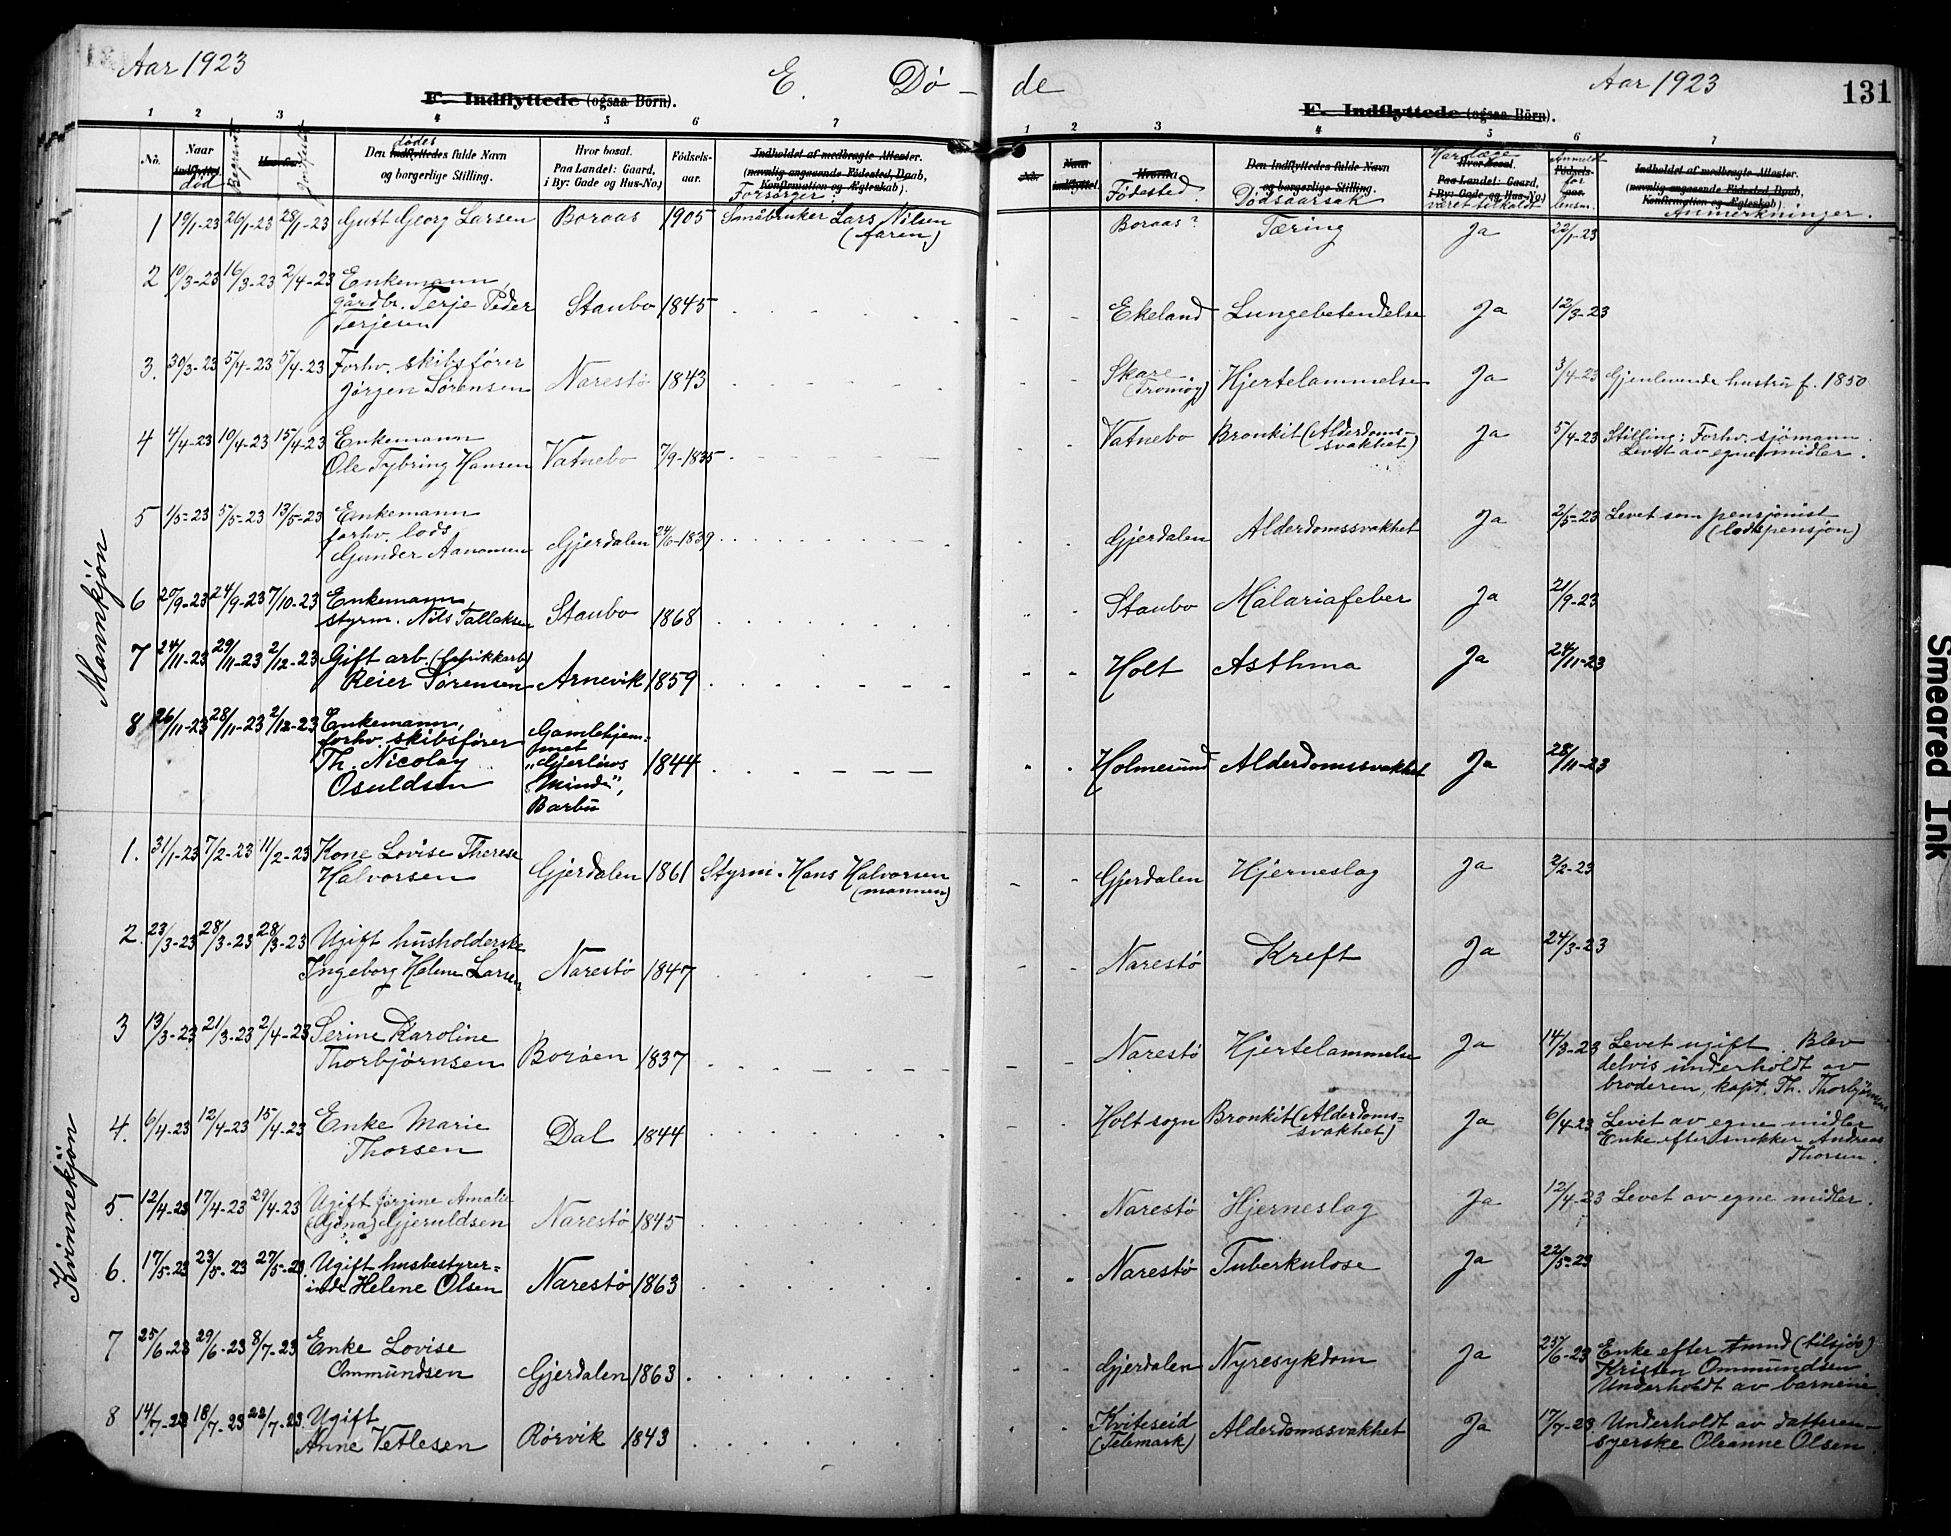 Aar 1923
E. Dø-
F. Indflyttede (ogsaa Børn).
1 2 3 4 5 6 7
No. Naar indflyttet død Begravet Hvorfra Jordfestet Den Indflyttedes dødes fulde Navn og borgerlige Stilling. Hvor bosat. Paa Landet: Gaard, i By: Gade og Hus-No.) Fødsels-aar. Indholdet af medbragte Attester. (navnlig angaaende Fødested, Daab, Konfirmation og Ægteskab). Forsørger:
Mannkjøn
1 19/1-23 26/1-23 28/1-23 Gutt Georg Larsen Boraas 1905 Småbruker Lars Nilsen
(faren)
2 10/3-23 16/3-23 2/4-23 Enkemann,
gårdbr. Terje Peder Staubo 1845
Terjesen
3. 30/3-23 5/4-23 5/4-23 Forhv. skibsfører
Jørgen Sørensen Narestø 1843
4 4/4-23 10/4-23 15/4-23 Enkemann
Ole Tybring Hansen Vatnebo 7/9-1835
5 1/5-23 5/5-23 13/5-23 Enkemann
forhv. lods
Gunder Aanonsen Gjerdalen 24/6-1839
6 20/9-23 24/9-23 7/10-23 Enkemann,
styrm. Nils Tallaksen Staubo 1868
7 24/11-23 29/11-23 2/12-23 Gift arb. (fabrikkarb)
Reier Sørensen Arnevik 1859
8 26/11-23 28/11-23 2/12-23 Enkemann, Gamlehjem-
forhv. skibsfører met
Th. Nicolay "Gjerløws 1844
Osuldsen Minde",
Barbu
Kvinnekjøn
1. 31/1-23 7/2-23 11/2-23 Kone Lovise Therese
Halvorsen Gjerdalen 1861 Styrm. Hans Halvorsen
(mannen)
2. 23/3-23 28/3-23 28/3-23 Ugift husholderske
Ingeborg Helene Larsen Narestø 1847
3 13/3-23 21/3-23 2/4-23 Serine Karoline
Thorbjørnsen Borøen 1837
4. 6/4-23 12/4-23 15/4-23 Enke Marie
Thorsen Dal 1844
5. 12/4-23 17/4-23 29/4-23 Ugift Jørgine Amalie
Gjeruldsen Narestø 1845
6. 17/5-23 23/5-23 27/5-23 Ugift husbestyrer-
inde Helene Olsen Narestø 1863
7 25/6-23 29/6-23 8/7-23 Enke Lovise
Ommundsen Gjerdalen 1863
8 14/7-23 18/7-23 22/7-23 Ugift
Anne Vetlesen Rørvik 1843
de
Aar 1923
131
F. Indflyttede (ogsaa Børn).
1 2 3 4 5 6 7
No. Naar indflyttet. Hvorfra Fødested. Den Indflyttedes fulde Navn og borgerlige Stilling. Dødsaarsak Har læge Hvor bosat. Paa Landet: Gaard, i By: Gade og Hus-No.) været tilkaldt Anmeldt Fødsels-aar. for lensm. Indholdet af medbragte Attester. (navnlig angaaende Fødested, Daab, Konfirmation og Ægteskab). Anmerkninger.
Boraas? Tæring Ja 22/1-23
Ekeland Lungebetendelse Ja 12/3-23
Skare
(Tromøy) Hjertelammelse Ja 3/4-23 Gjenlevende hustru f. 1850
Vatnebo Bronkit (Alderdoms-
svakhet) Ja 5/4-23 Stilling: Forhv. sjømann.
Levet av egne midler.
Gjerdalen Alderdomssvakhet Ja 2/5-23 Levet som pensjonist
(lodspensjon)
Staubo Malariafeber Ja 21/9-23
Holt Asthma Ja 24/11-23
Holmesund Alderdomssvakhet Ja 28/11-23
Gjerdalen Hjerneslag Ja 2/2-23
Narestø Kreft Ja 24/3-23
Narestø Hjertelammelse Ja 14/3-23 Levet ugift. Blev
delvis underholdt av
broderen, kapt. Th. Thorbjørnsen
Holt sogn Bronkit (Alderdoms-
svakhet) Ja 6/4-23 Levet av egne midler
Enke efter snekker Andreas
Thorsen.
Narestø Hjerneslag Ja 12/4-23 Levet av egne midler.
Narestø Tuberkulose Ja 22/5-23
Gjerdalen Nyresykdom Ja 25/6-23 Enke efter Amund (tilsjøs)
Kristen Ommundsen
Underholdt av barnene.
Kviteseid
(Telemark) Alderdomssvakhet Ja 17/7-23 Underholdt av datteren-
syerske Oleanne Olsen.
Smeared Ink